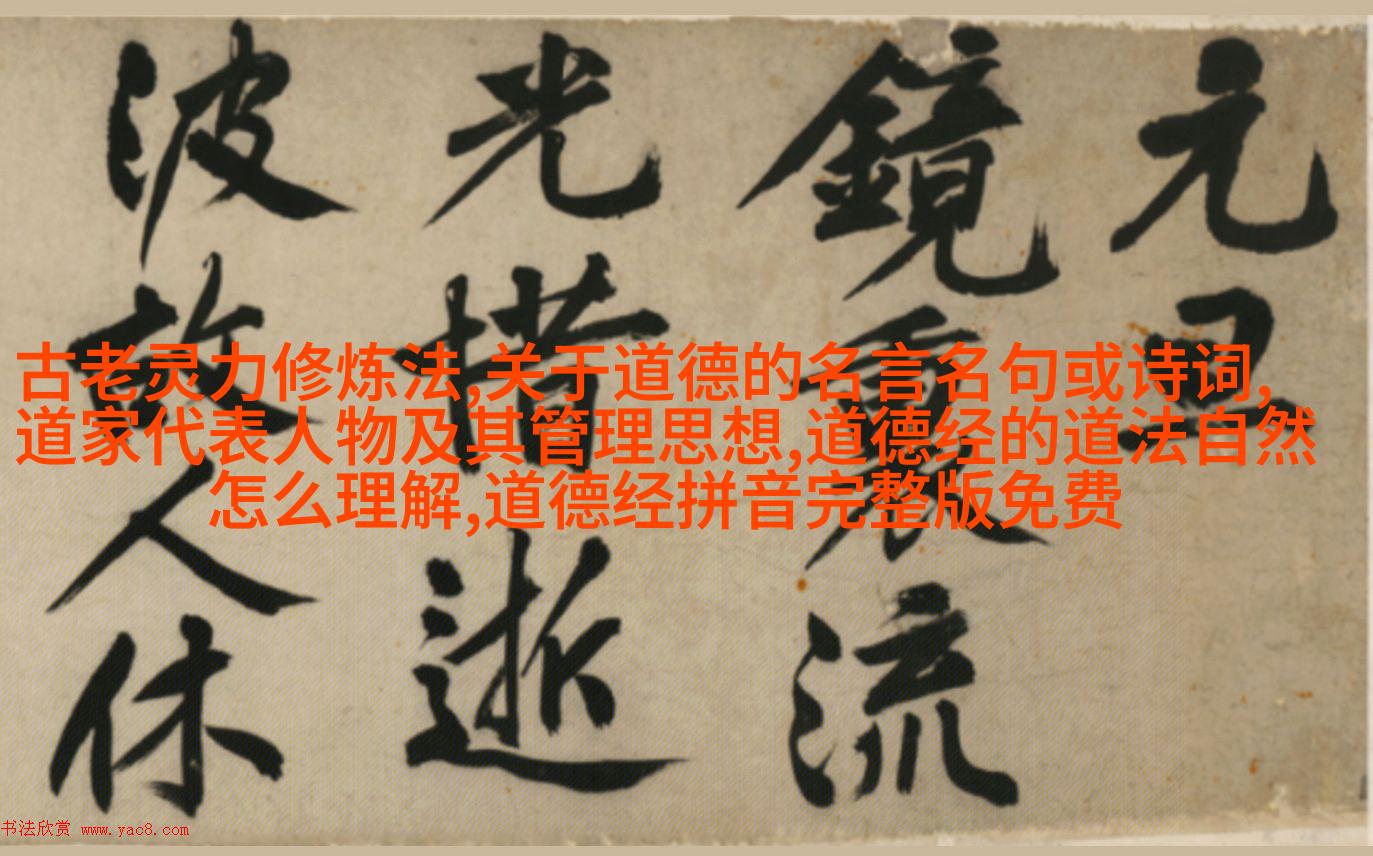 元
鏡裏流
光惜逝
波故人休
古老灵力修炼法,关于道德的名言名句或诗词,
道家代表人物及其管理思想,道德经的道法自然
怎么理解,道德经拼音完整版免费
书法欣赏 www.yac8.com